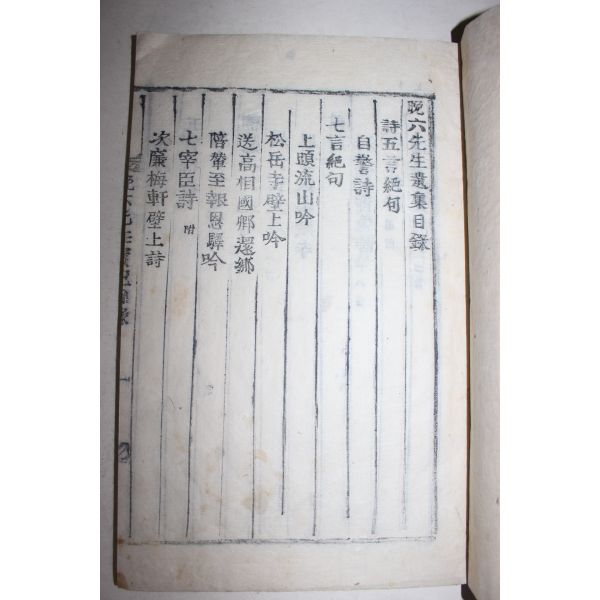 晩六先生遺集目錄
詩五言絕句
自警詩
七言絕句
上頭流山吟
松岳寺壁上吟
送高相國鄕還鄕
陪輦至報恩驛吟
七宰臣詩 附
次廉梅軒壁上詩